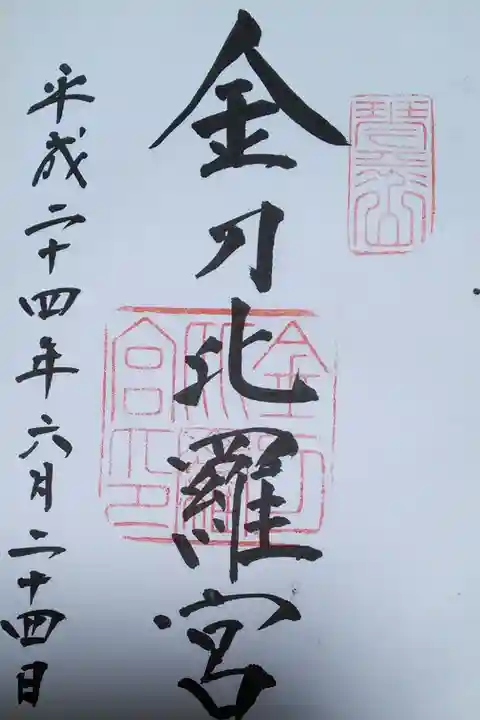 琴平山
金刀比羅宮
金刀
比羅
宮之印
平成二十四年六月二十四日